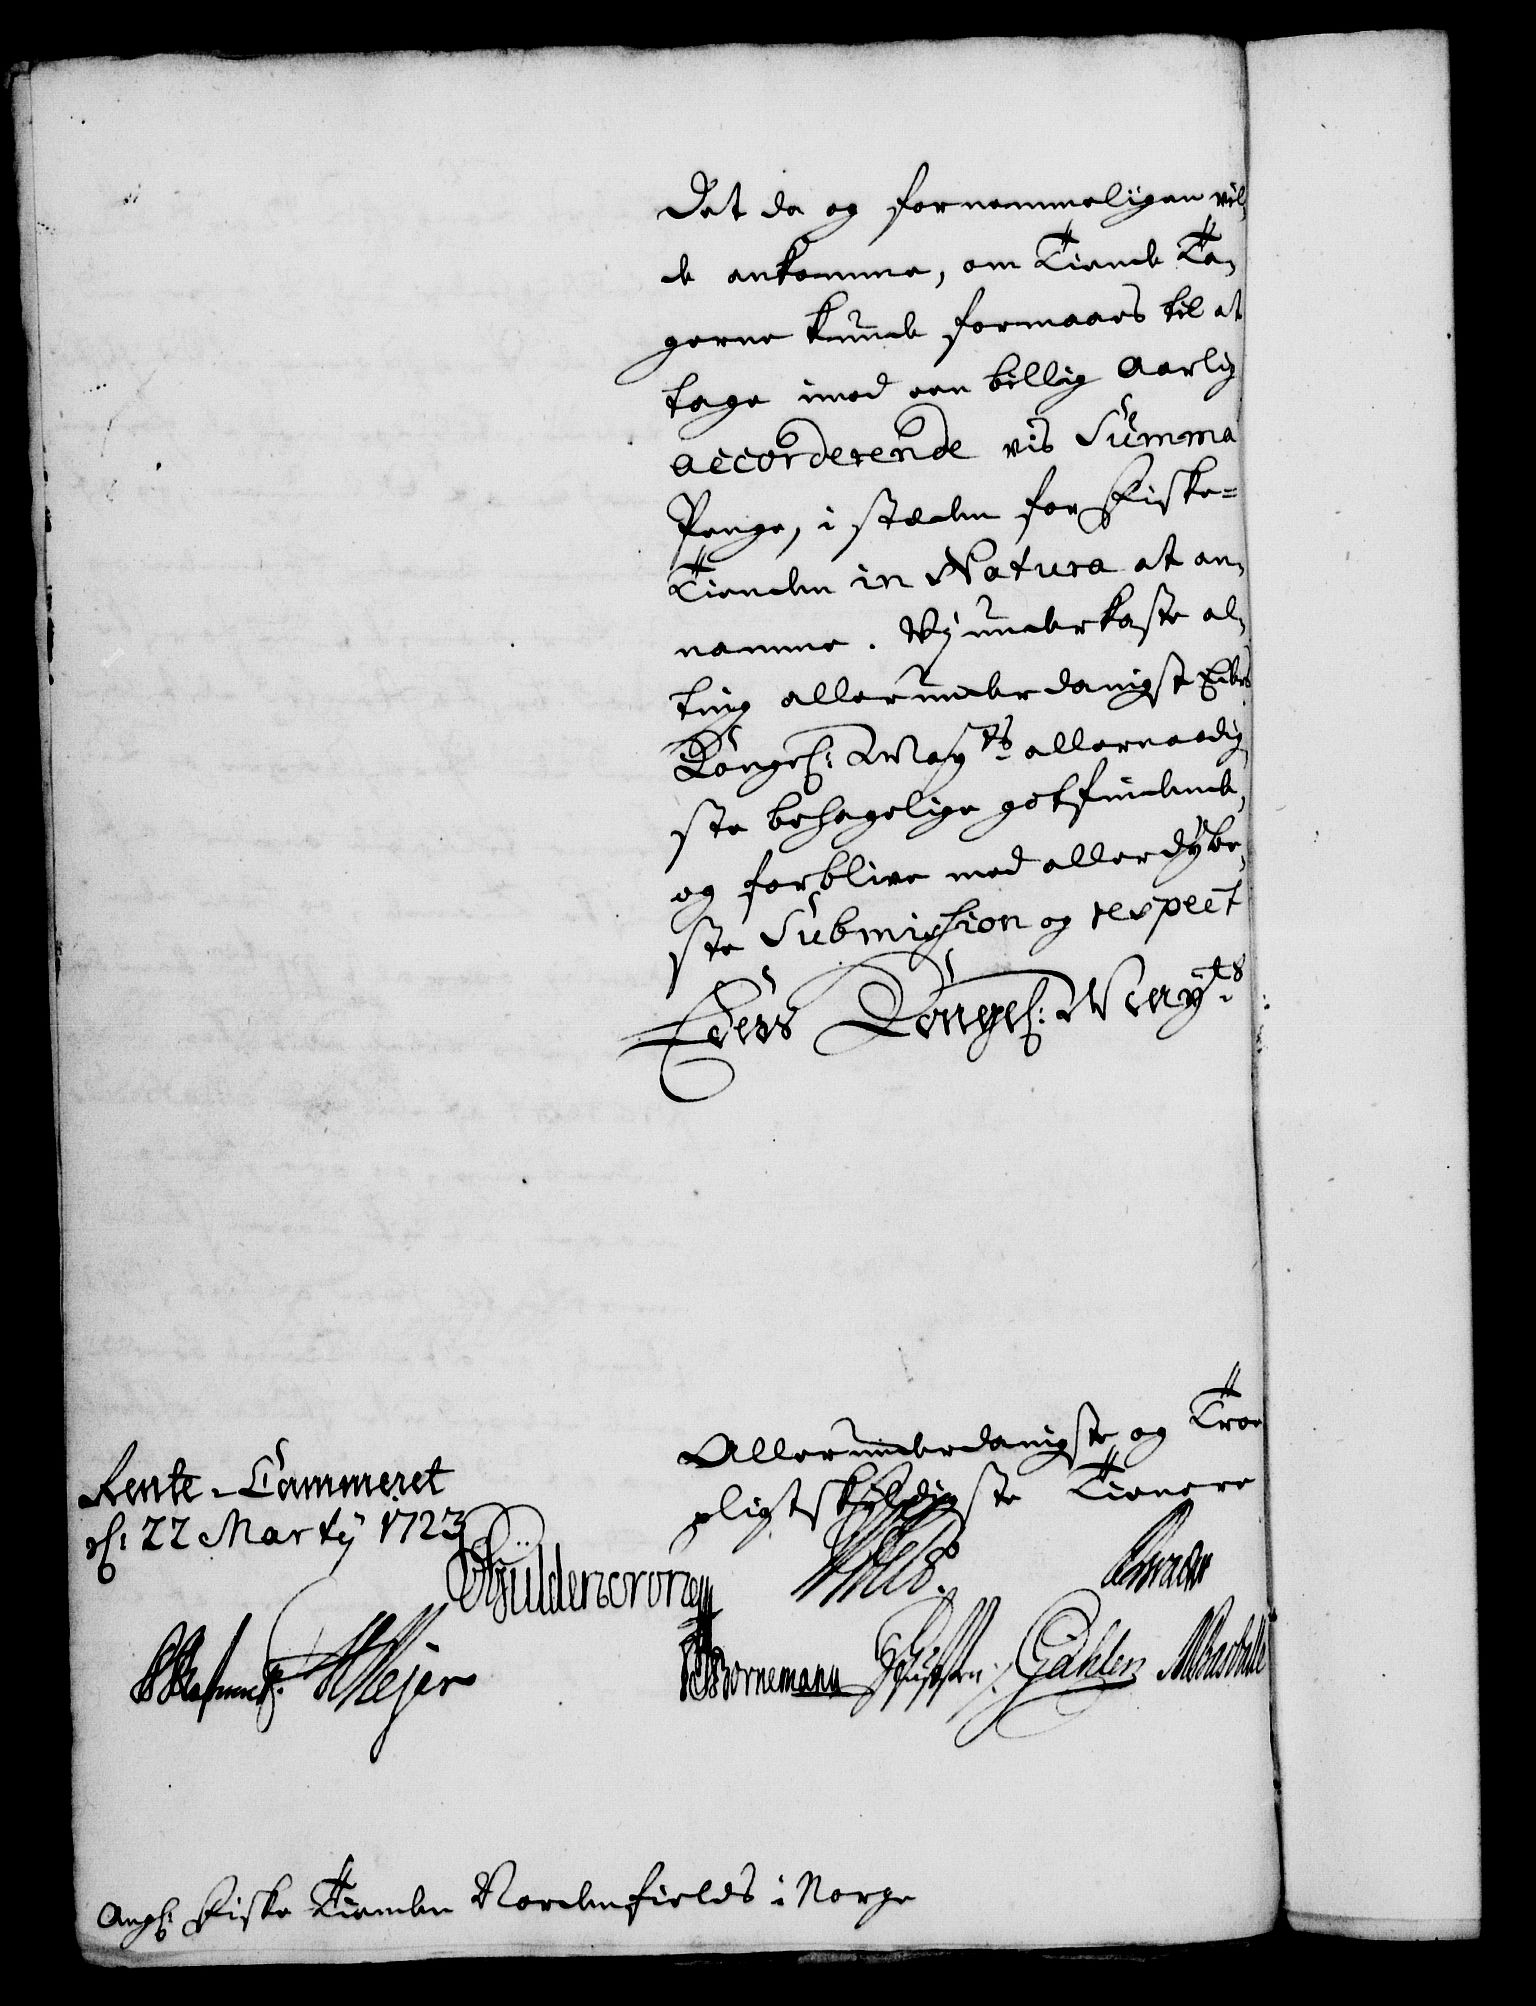 Det da og fornemmeligen vil,
de ankomme, om Tiende Ta,
gerne kunde formaaes til at
tage imod een billig Aarlig
accorderende vis Summa
Penge, i stæden for Fiske=
Tienden in Natura at an,
namme. Vij underkaste al,
ting allerunderdanigst Eders
Kongel: May.ts allernaadig,
ste behagelige gotfindende,
og forblive med allerdybe,
ste Submission og respect
Eders Kongel: May.ts
Allerunderdanigste og Troe
pligtskyldigste Tienere
Rente-Cammeret
d: 22 Martij 1723
Güldencrone
Meyer
Bornemann
Gähler
Angl: Fiske Tienden Nordenfields i Norge